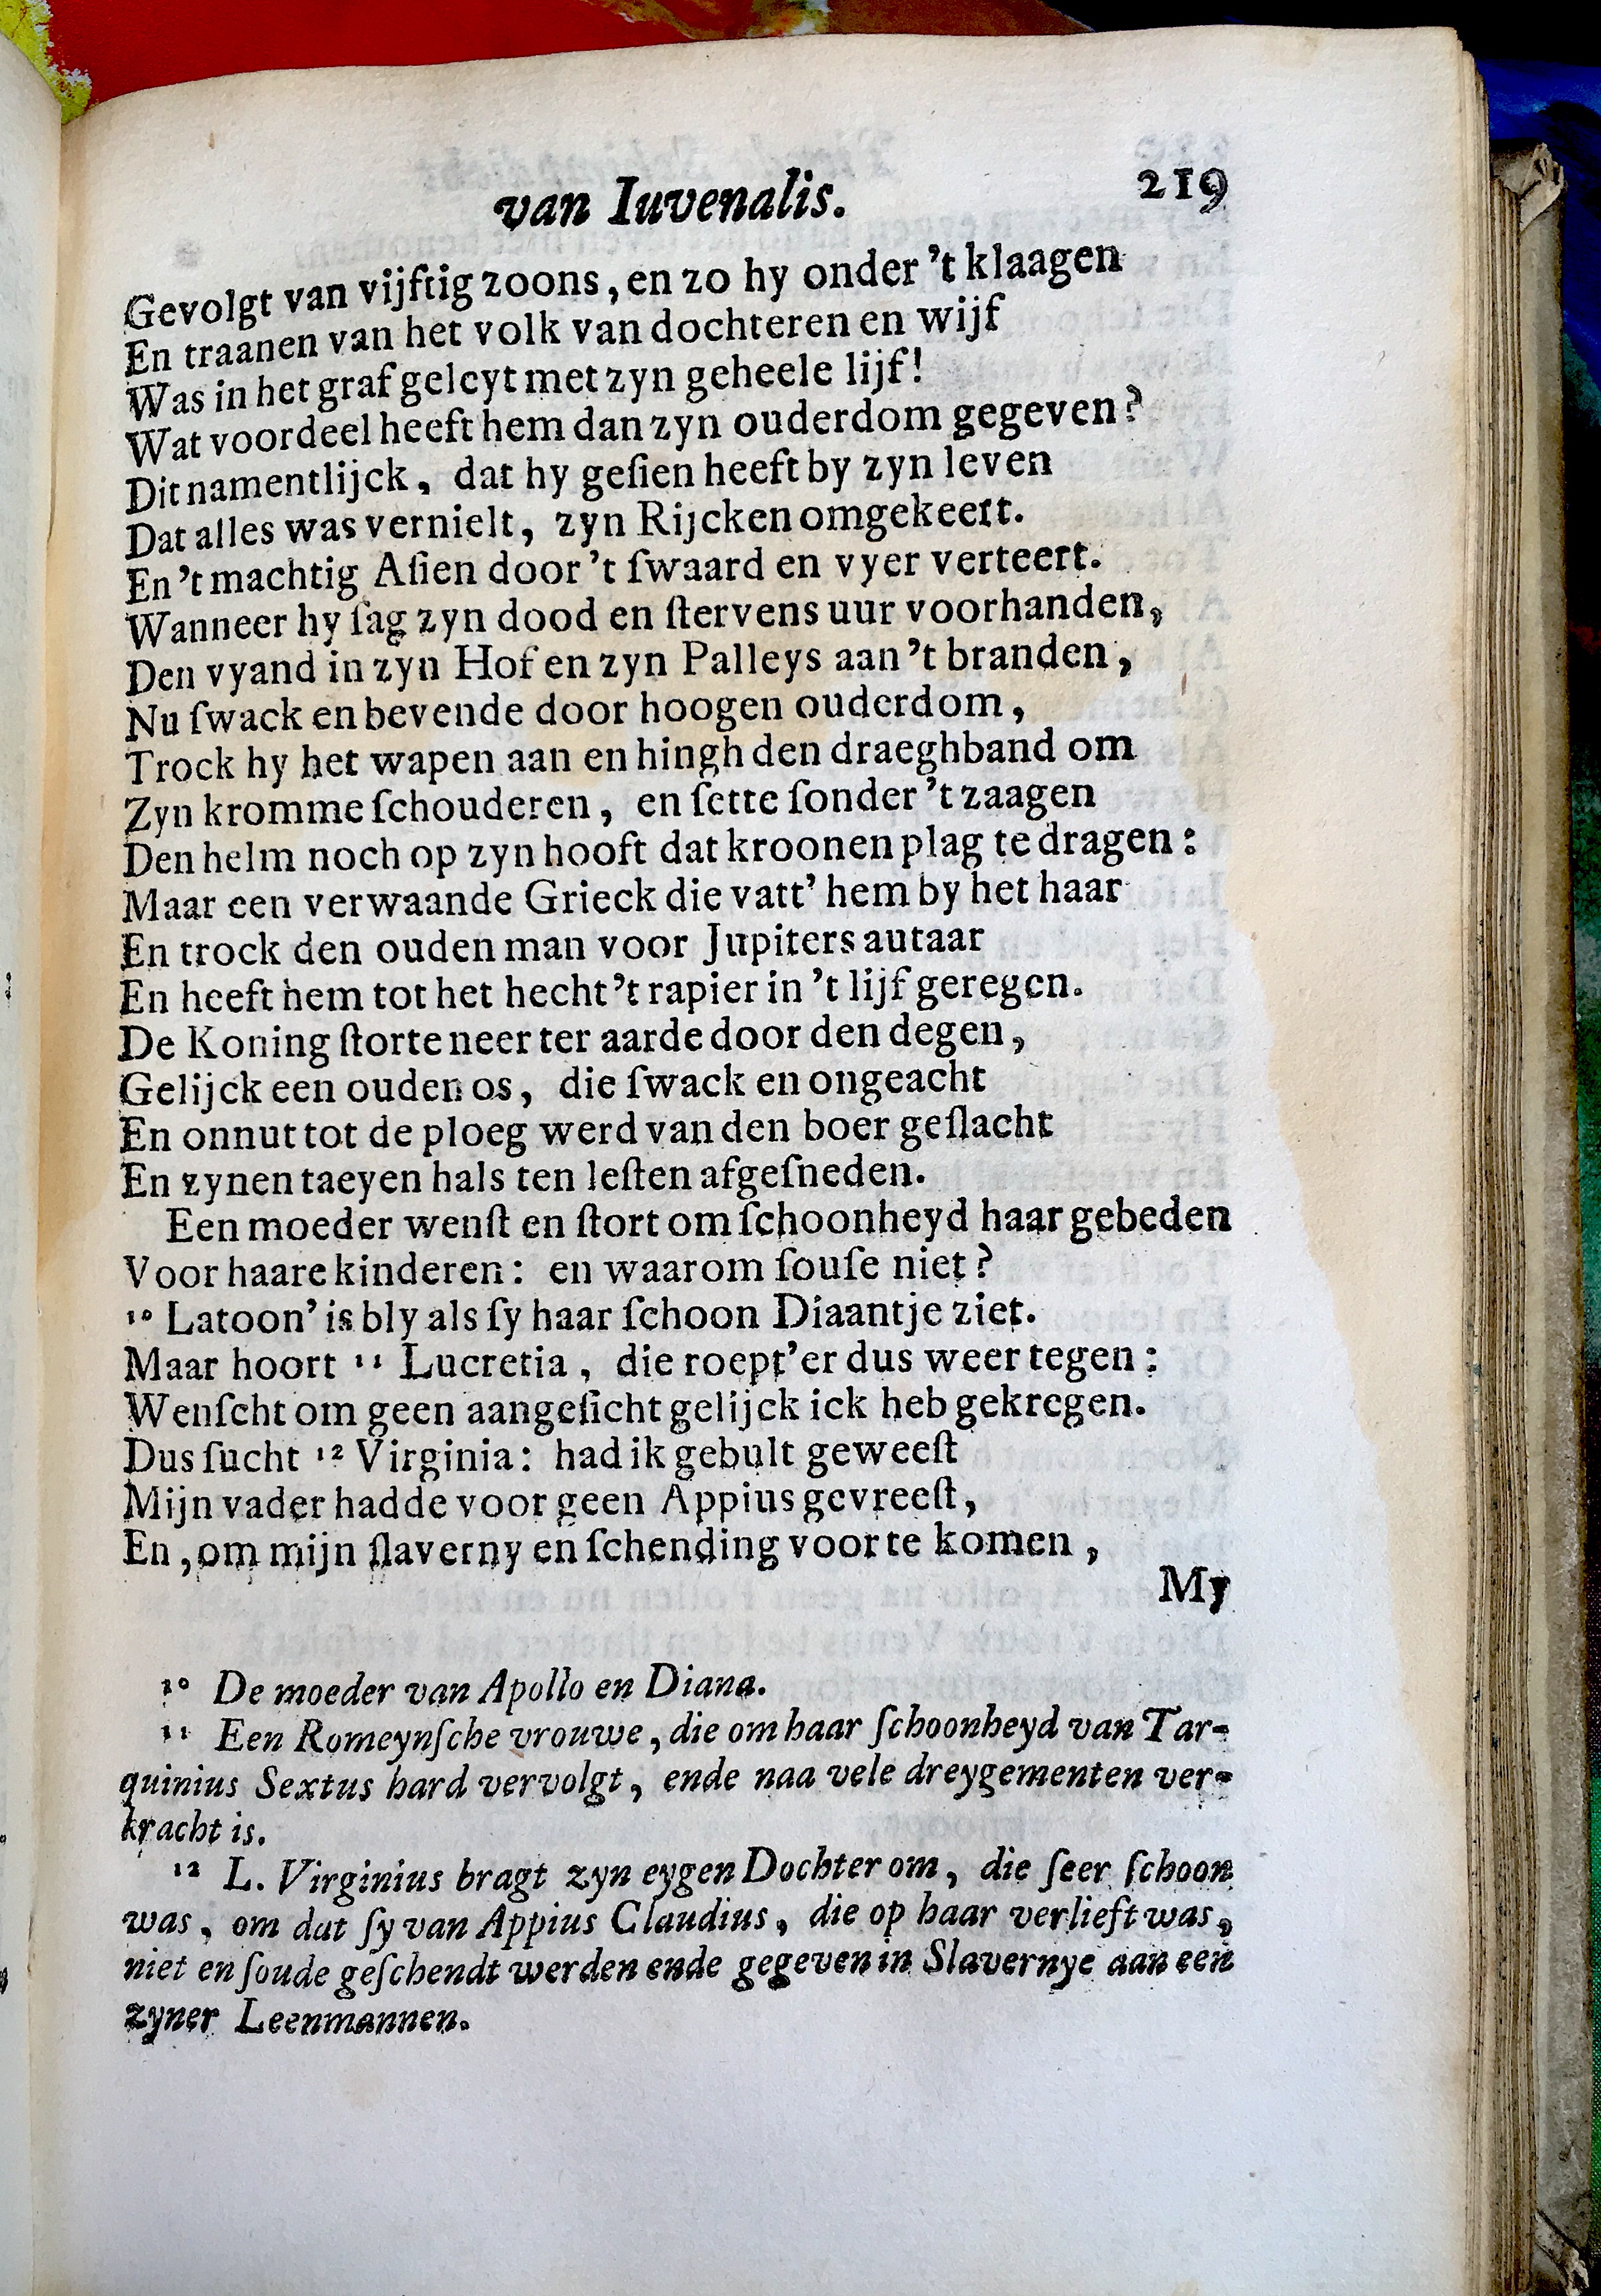 van Iuvenalis. 219
Gevolgt van vijftig zoons, en zo hy onder 't klaagen
En traanen van het volk van dochteren en wijf
Was in het graf geleyt met zyn geheele lijf!
Wat voordeel heeft hem dan zyn ouderdom gegeven?
Dit namentlijck, dat hy geſien heeft by zyn leven
Dat alles was vernielt, zyn Rijcken omgekeert.
En 't machtig Aſien door 't ſwaard en vyer verteert.
Wanneer hy ſag zyn dood en ſtervens uur voorhanden,
Den vyand in zyn Hof en zyn Palleys aan 't branden,
Nu ſwack en bevende door hoogen ouderdom,
Trock hy het wapen aan en hingh den draeghband om
Zyn kromme ſchouderen, en ſette ſonder 't zaagen
Den helm noch op zyn hooft dat kroonen plag te dragen:
Maar een verwaande Grieck die vatt' hem by het haar
En trock den ouden man voor Jupiters autaar
En heeft hem tot het hecht 't rapier in 't lijf geregen.
De Koning ſtorte neer ter aarde door den degen,
Gelijck een ouden os, die ſwack en ongeacht
En onnut tot de ploeg werd van den boer geſlacht
En zynen taeyen hals ten leſten afgeſneden.
Een moeder wenſt en ſtort om ſchoonheyd haar gebeden
Voor haare kinderen: en waarom ſouſe niet?
¹⁰ Latoon' is bly als ſy haar ſchoon Diaantje ziet.
Maar hoort ¹¹ Lucretia, die roept'er dus weer tegen:
Wenſcht om geen aangeſicht gelijck ick heb gekregen.
Dus ſucht ¹² Virginia: had ik gebult geweeſt
Mijn vader hadde voor geen Appius gevreeſt,
En, om mijn ſlaverny en ſchending voor te komen,
My
¹⁰ De moeder van Apollo en Diana.
¹¹ Een Romeynſche vrouwe, die om haar ſchoonheyd van Tar-
quinius Sextus hard vervolgt, ende naa vele dreygementen ver-
kracht is.
¹² L. Virginius bragt zyn eygen Dochter om, die ſeer ſchoon
was, om dat ſy van Appius Claudius, die op haar verlieft was,
niet en ſoude geſchendt werden ende gegeven in Slavernye aan een
zyner Leenmannen.